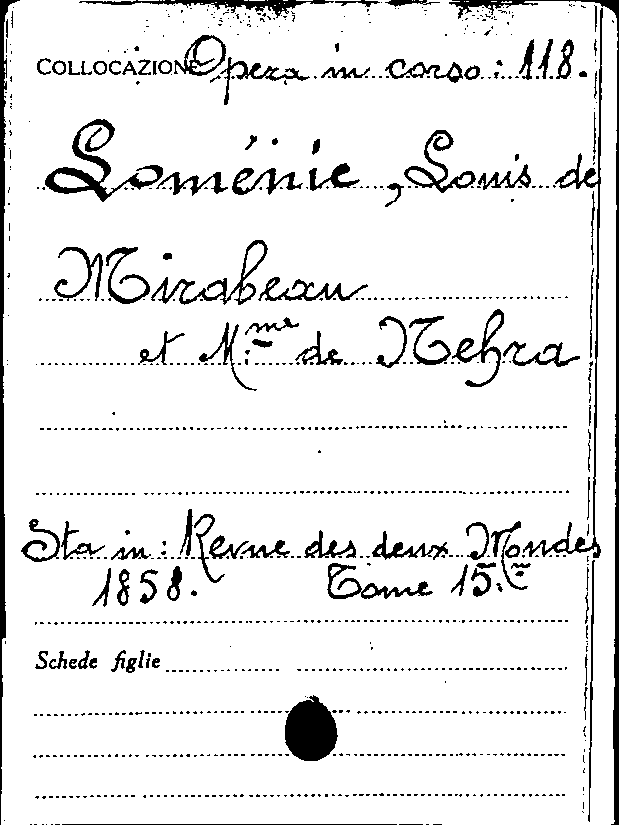 COLLOCAZIONE Opera in corso: 118.
Loménie, Louis de
Mirabeau
et M.me de Nehra
Sta in: Revue des deux Mondes
1858. Tome 15.me
Schede figlie